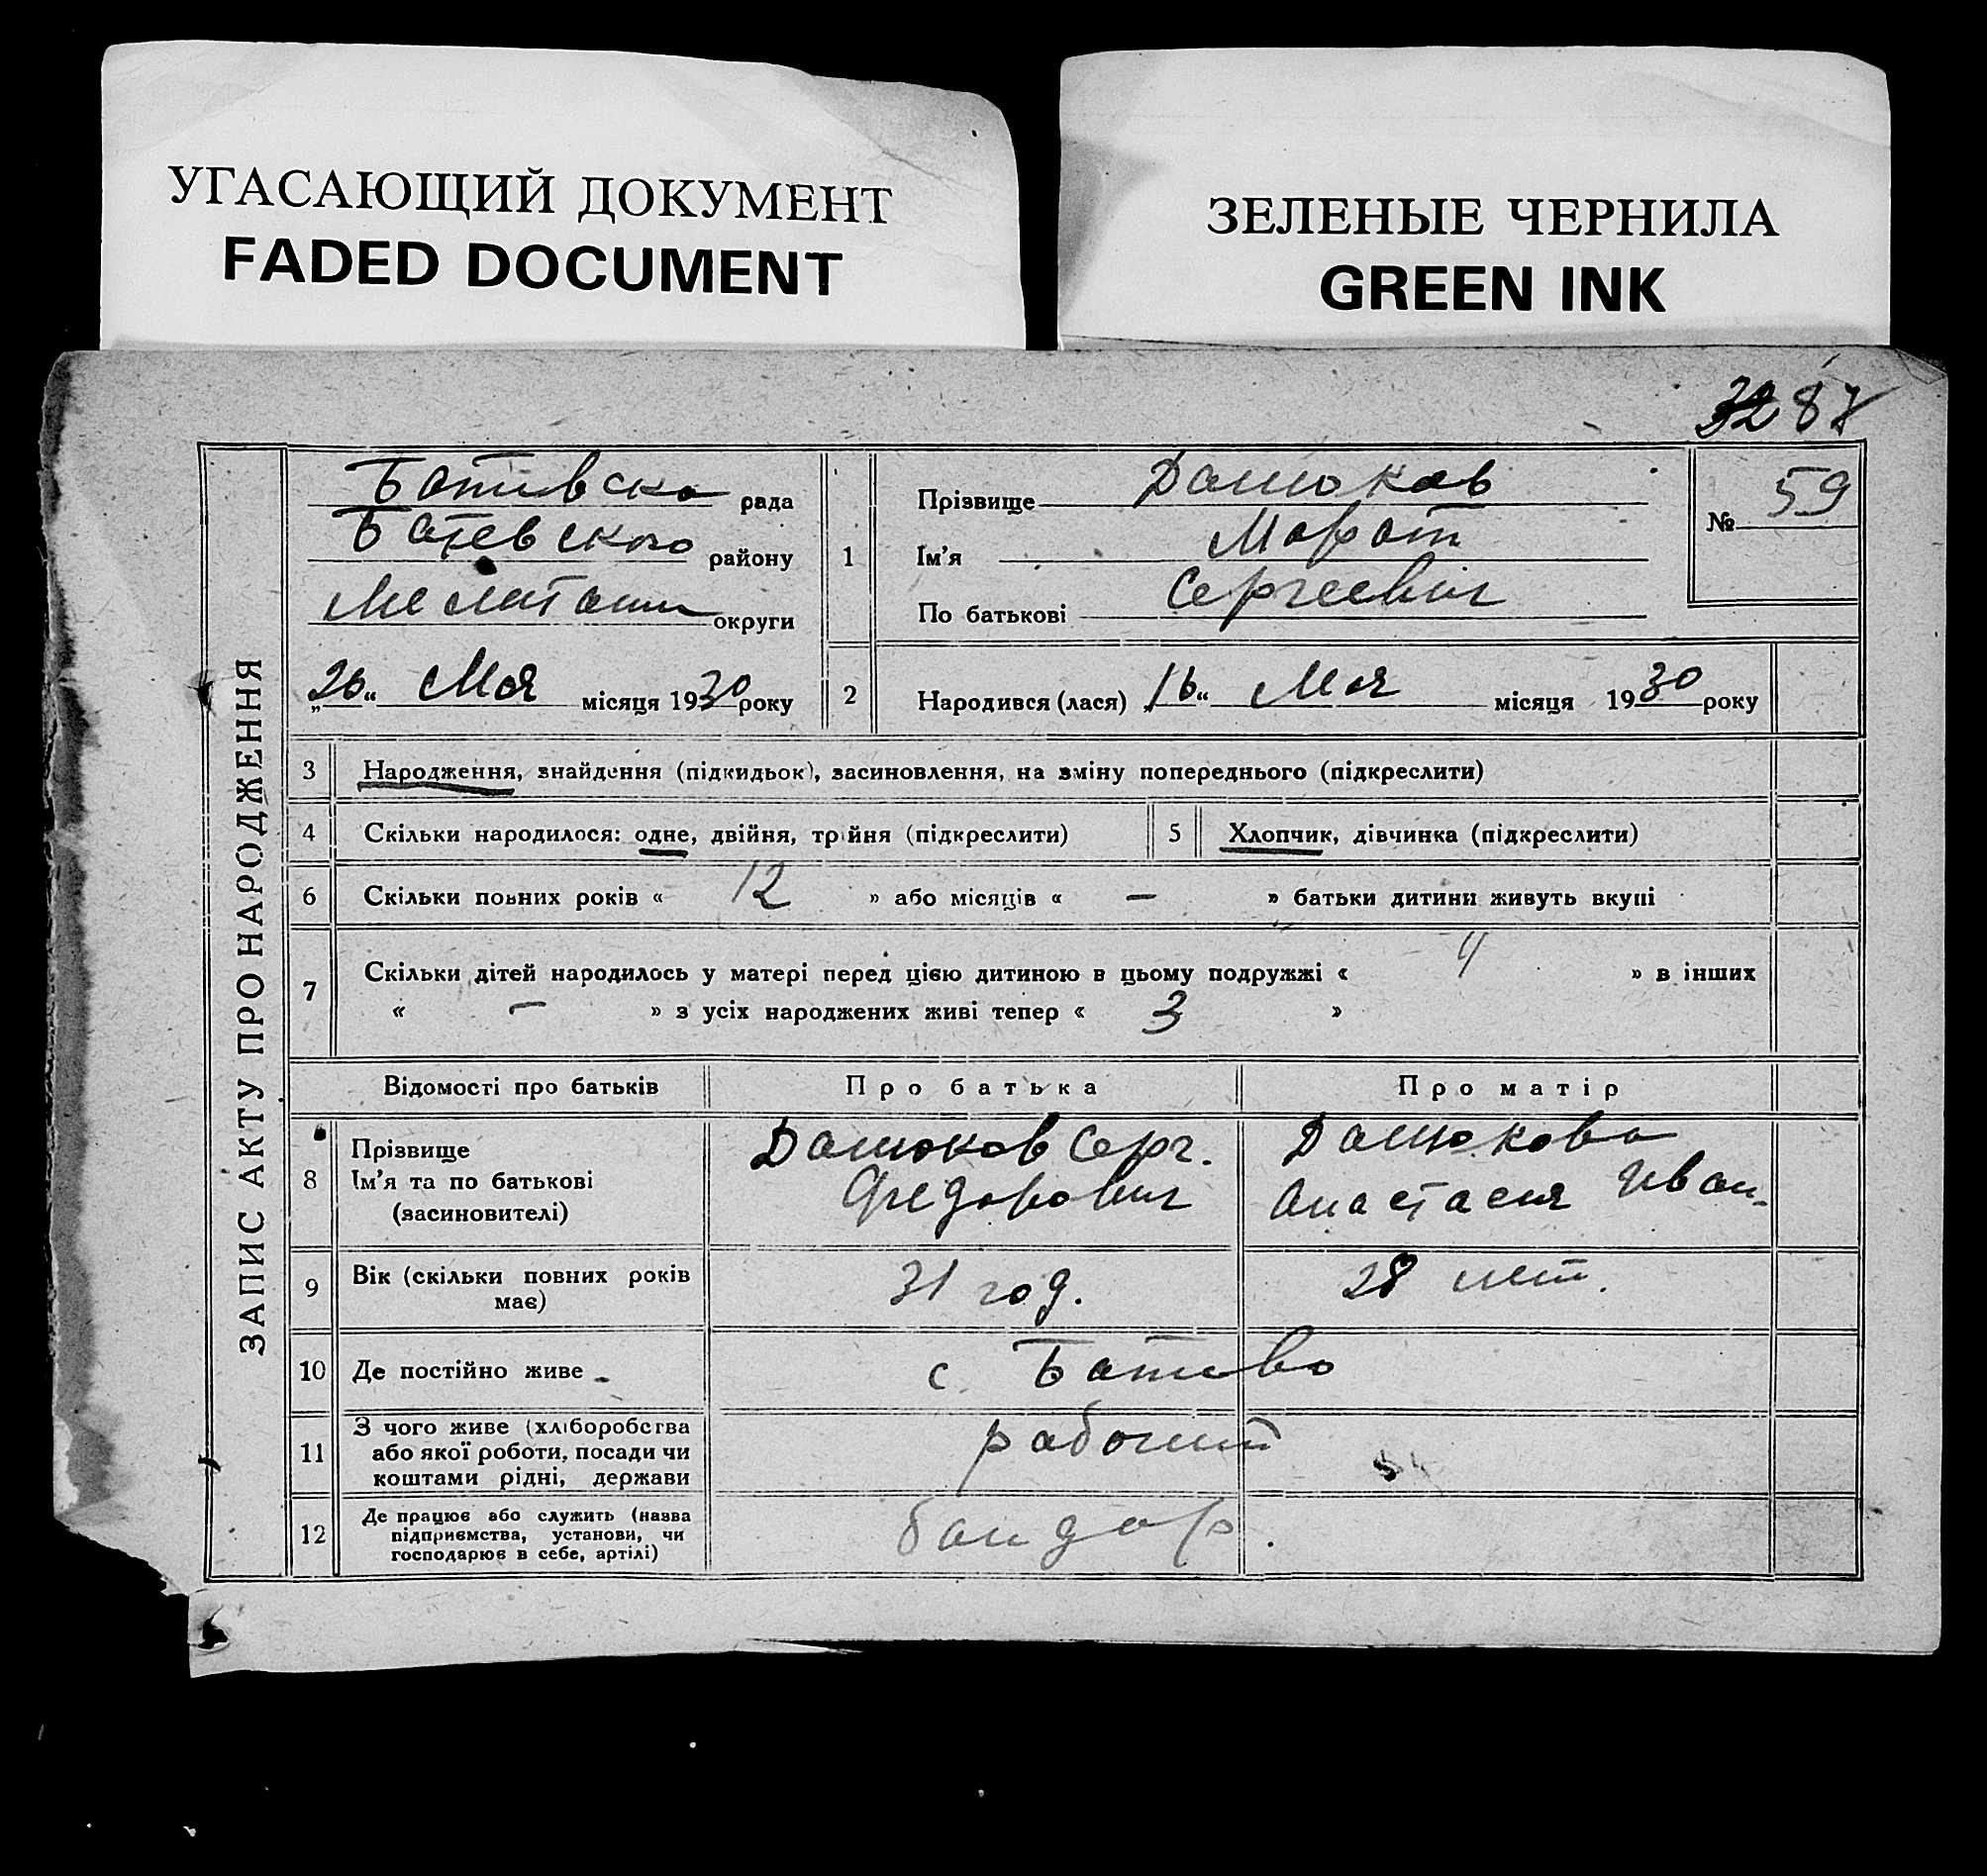 УГАСАЮЩИЙ ДОКУМЕНТ
FADED DOCUMENT
ЗЕЛЕНЫЕ ЧЕРНИЛА
GREEN INK
87
ЗАПИС АКТУ ПРО НАРОДЖЕННЯ
рада
району
округи
„26“ Мая місяця 1930 року
1
Прізвище Дашоков
Ім'я Марат
По батькові Сергеевич
№ 59
2 Народився (лася) „16“ Мая місяця 1930 року
3 Народження, знайдення (підкидьок), засиновлення, на зміну попереднього (підкреслити)
4 Скільки народилося: одне, двійня, трійня (підкреслити)
5 Хлопчик, дівчинка (підкреслити)
6 Скільки повних років « 12 » або місяців « — » батьки дитини живуть вкупі
7 Скільки дітей народилось у матері перед цією дитиною в цьому подружжі « 4 » в інших
« — » з усіх народжених живі тепер « 3 »
Відомості про батьків Про батька Про матір
8 Прізвище
Ім'я та по батькові
(засиновителі)
Дашоков Серг.
Федорович
Дашокова
Анастасия Иван.
9 Вік (скільки повних років
має)
31 год.
28 лет.
10 Де постійно живе с. Батево
11 З чого живе (хліборобства
або якої роботи, посади чи
коштами рідні, держави
рабочий
12 Де працює або служить (назва
підприємства, установи, чи
господарює в себе, артілі)
бондар.